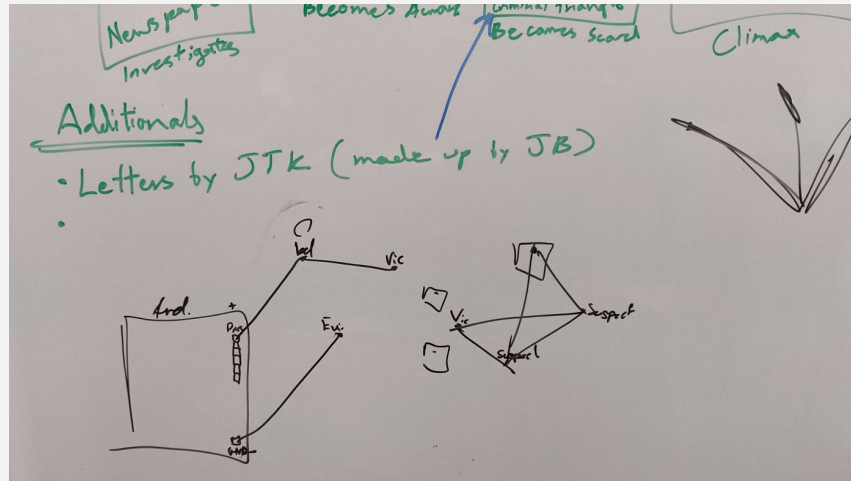 Newspap
Investigates
Becomes Across
Criminal triangle
Becomes Scared
Climax
Additionals
• Letters by JTK (made up by JB)
•
Vic
Ard.
+
Evi.
Vic
Suspect
Suspect
GND